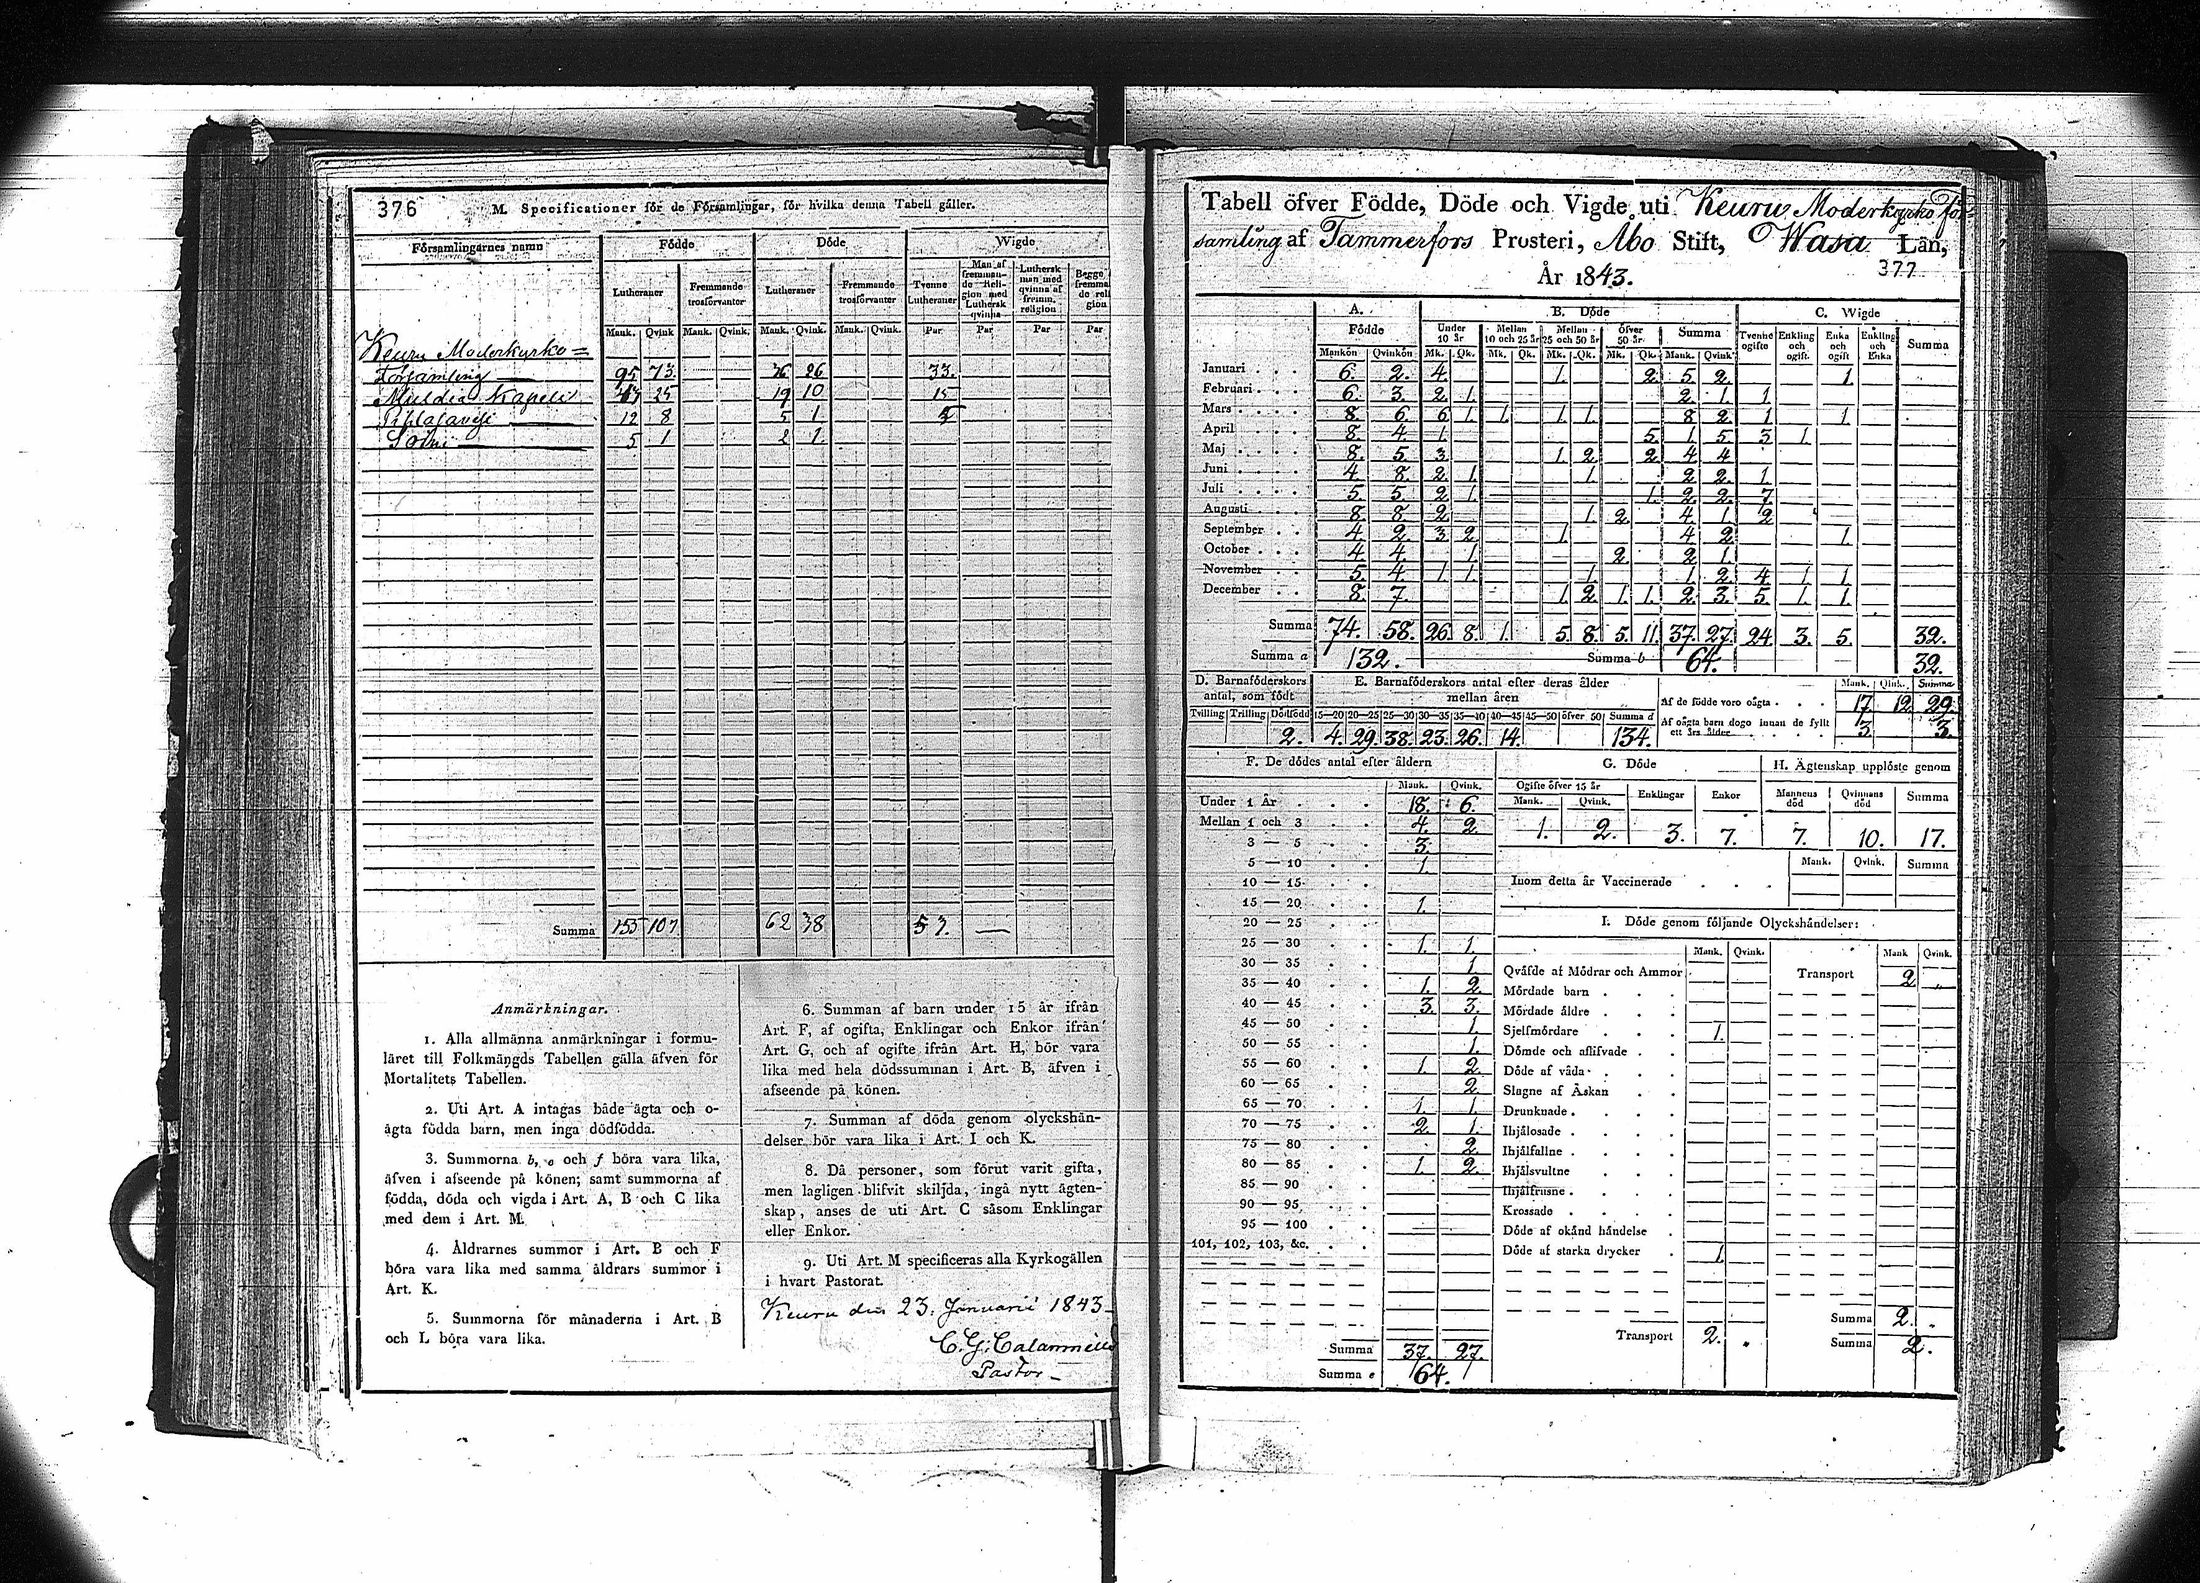 376 M. Specificationer för de Församlingar, för hvilka denna Tabell gäller.
Församlingarnes namn Födde Döde Wigde
Lutheraner Fremmande trosförvanter Lutheraner Fremmande trosförvanter Tvenne Lutheraner Man af fremmande Religion med Luthersk qvinna Luthersk man med qvinna af fremm. religion Begge fremma de reli gion
Mank. Qvink Mank. Qvink. Mank. Qvink. Mank. Qvink. Par Par Par Par
Keuru Moderkyrko=
Församling 95 73 36 26 33.
Muldia Kapell 43 25 19 10 15
Pihlajavesi 12 8 5 1
5 1 2 1
Summa 155 107 62 38 53. —
Anmärkningar.
1. Alla allmänna anmärkningar i formu-
läret till Folkmängds Tabellen gälla äfven för
Mortalitets Tabellen.
2. Uti Art. A intagas både ägta och o-
ägta födda barn, men inga dödfödda.
3. Summorna b, e och f böra vara lika,
äfven i afseende på könen; samt summorna af
födda, döda och vigda i Art. A, B och C lika
med dem i Art. M.
4. Åldrarnes summor i Art. B och F
böra vara lika med samma åldrars summor i
Art. K.
5. Summorna för månaderna i Art. B
och L böra vara lika.
6. Summan af barn under 15 år ifrån
Art. F, af ogifta, Enklingar och Enkor ifrån
Art. G, och af ogifte ifrån Art. H, bör vara
lika med hela dödssumman i Art. B, äfven i
afseende på könen.
7. Summan af döda genom olyckshän-
delser bör vara lika i Art. I och K.
8. Då personer, som förut varit gifta,
men lagligen blifvit skiljda, ingå nytt ägten-
skap, anses de uti Art. C såsom Enklingar
eller Enkor.
9. Uti Art. M specificeras alla Kyrkogällen
i hvart Pastorat.
Keuru den 23. Januarii 1843
C. G. Calamnius
Pastor
Tabell öfver Födde, Döde och Vigde uti Keuru Moderkyrko för-
samling af Tammerfors Prosteri, Åbo Stift, Wasa Län,
År 1843. 377
A. B. Döde C. Wigde
Födde Under 10 år Mellan 10 och 25 år Mellan 25 och 50 år Öfver 50 år Summa Tvenne ogifte Enkling och ogift. Enka och ogift Enkling och Enka Summa
Mankön Qvinkön Mk. Qk. Mk. Qk. Mk. Qk. Mk. Qk. Mank. Qvink
Januari . . . 6. 2. 4. 1. 2. 5. 2. 1.
Februari . . . 6. 3. 2. 1. 2. 1. 1.
Mars . . . . 8. 6. 6. 1. 1. 1. 1. 8. 2. 1. 1.
April . . . . 8. 4. 1. 5. 1. 5. 3. 1.
Maj . . . . 8. 5. 3. 1. 2. 2. 4. 4.
Juni . . . . 4. 8. 2. 1. 1. 2. 2. 1.
Juli . . . . 5. 5. 2. 1. 1. 2. 2. 7.
Augusti . . . 8. 8. 2. 1. 2. 4. 1. 2
September . . 4. 2. 3. 2. 1. 4. 2. 1.
October . . . 4. 4. 1. 2. 2. 1.
November . . 5. 4. 1. 1. 1. 1. 2. 4. 1. 1.
December . . 8. 7. 1. 2. 1. 1. 2. 3. 5. 1. 1.
Summa 74. 58. 26. 8. 1. 5. 8. 5. 11. 37. 27. 24. 3. 5. 32.
Summa a 132. Summa b 64. 32.
D. Barnaföderskors antal, som födt
Tvilling Trilling Dödfödd
2.
E. Barnaföderskors antal efter deras ålder mellan åren
15—20 20—25 25—30 30—35 35—40 40—45 45—50 öfver 50 Summa d
4. 29. 38. 23. 26. 14. 134.
Mank. Qink. Summa
Af de födde voro oägta . . . 17. 12. 29.
Af oägta barn dogo innan de fyllt ett års ålder . . . . . 3. 3.
F. De dödes antal efter åldern
Mank. Qvink.
Under 1 År . . . 18. 6.
Mellan 1 och 3 . . 4. 2
3 — 5 . . 3.
5 — 10 . . 1.
10 — 15 . .
15 — 20 . . 1.
20 — 25 . .
25 — 30 . . 1. 1.
30 — 35 . . 1.
35 — 40 . . 1. 2.
40 — 45 . . 3. 3.
45 — 50 . . 1.
50 — 55 . . 1.
55 — 60 . . 1. 2.
60 — 65 . . 2.
65 — 70 . . 1. 1.
70 — 75 . . 2. 1.
75 — 80 . . 2.
80 — 85 . . 1. 2.
85 — 90 . .
90 — 95 . .
95 — 100 . .
101, 102, 103, &c. . .
Summa 37. 27.
Summa e 64.
G. Döde
Ogifte öfver 15 år Enklingar Enkor
Mank. Qvink.
1. 2. 3. 7.
H. Ägtenskap upplöste genom
Mannens död Qvinnans död Summa
7. 10. 17.
Mank. Qvink. Summa
Inom detta år Vaccinerade . . .
I. Döde genom följande Olyckshändelser:
Mank. Qvink. Mank Qvink.
Qväfde af Mödrar och Ammor Transport 2 „
Mördade barn . . .
Mördade äldre . . .
Sjelfmördare . . . 1.
Dömde och aflifvade . .
Döde af våda . . .
Slagne af Åskan . .
Drunknade . . . .
Ihjälosade . . . .
Ihjälfallne . . . .
Ihjälsvultne . . .
Ihjälfrusne . . . .
Krossade . . . .
Döde af okänd händelse .
Döde af starka drycker . 1.
Summa 2. „
Transport 2. „ Summa 2.